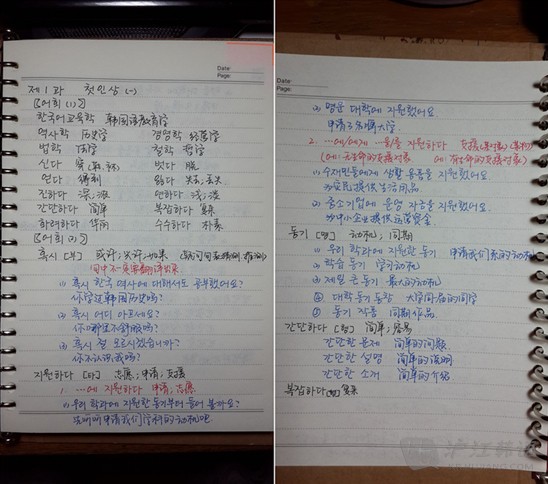 Date:
Page:
제1과 첫인상 (一)
[어휘 (1)]
한국어교육학 韩国语教育学
역사학 历史学 경영학 经营学
법학 法学 철학 哲学
신다 穿(鞋,袜) 벗다 脱
얻다 得到 잃다 失去,丢失
진하다 深,浓 연하다 浅,淡
간단하다 简单 복잡하다 复杂
화려하다 华丽 수수하다 朴素
[어휘 (2)]
혹시 [부] 或许;也许;如果
问句中不需要翻译如果
(1) 혹시 한국 역사에 대해서도 공부했어요?
你学过韩国历史吗?
(2) 혹시 어디 아프세요?
你哪里不舒服吗?
(3) 혹시 절 모르시겠습니까?
你不认识我吗?
지원하다 [타] 志愿;申请;支援
1. …에 지원하다 申请,志愿
(1) 우리 학과에 지원한 동기부터 들어 볼까요?
先听听申请我们学科的动机吧
Date:
Page:
(2) 명문 대학에 지원했어요.
申请了名牌大学
2. …에/에게 …을/를 지원하다 支援
(1) 수재민들에게 생활 용품을 지원했어요.
为灾民提供生活用品.
(2) 중소기업에 운영 자금을 지원했어요.
为中小企业提供运营资金.
동기 [명] 动机,同期
(1) 우리 학과에 지원한 동기 申请我们系的动机
(2) 학습 동기 学习动机
(3) 제일 큰 동기 最大的动机
(4) 대학 동기 동창 大学同届的同学
(5) 동기 작품 同期作品.
간단하다 [형] 简单,容易
간단한 문제 简单的问题.
간단한 설명 简单的说明
간단한 소개 简单的介绍.
복잡하다 [형] 复杂
沪江韩语
KR.HUJIANG.COM